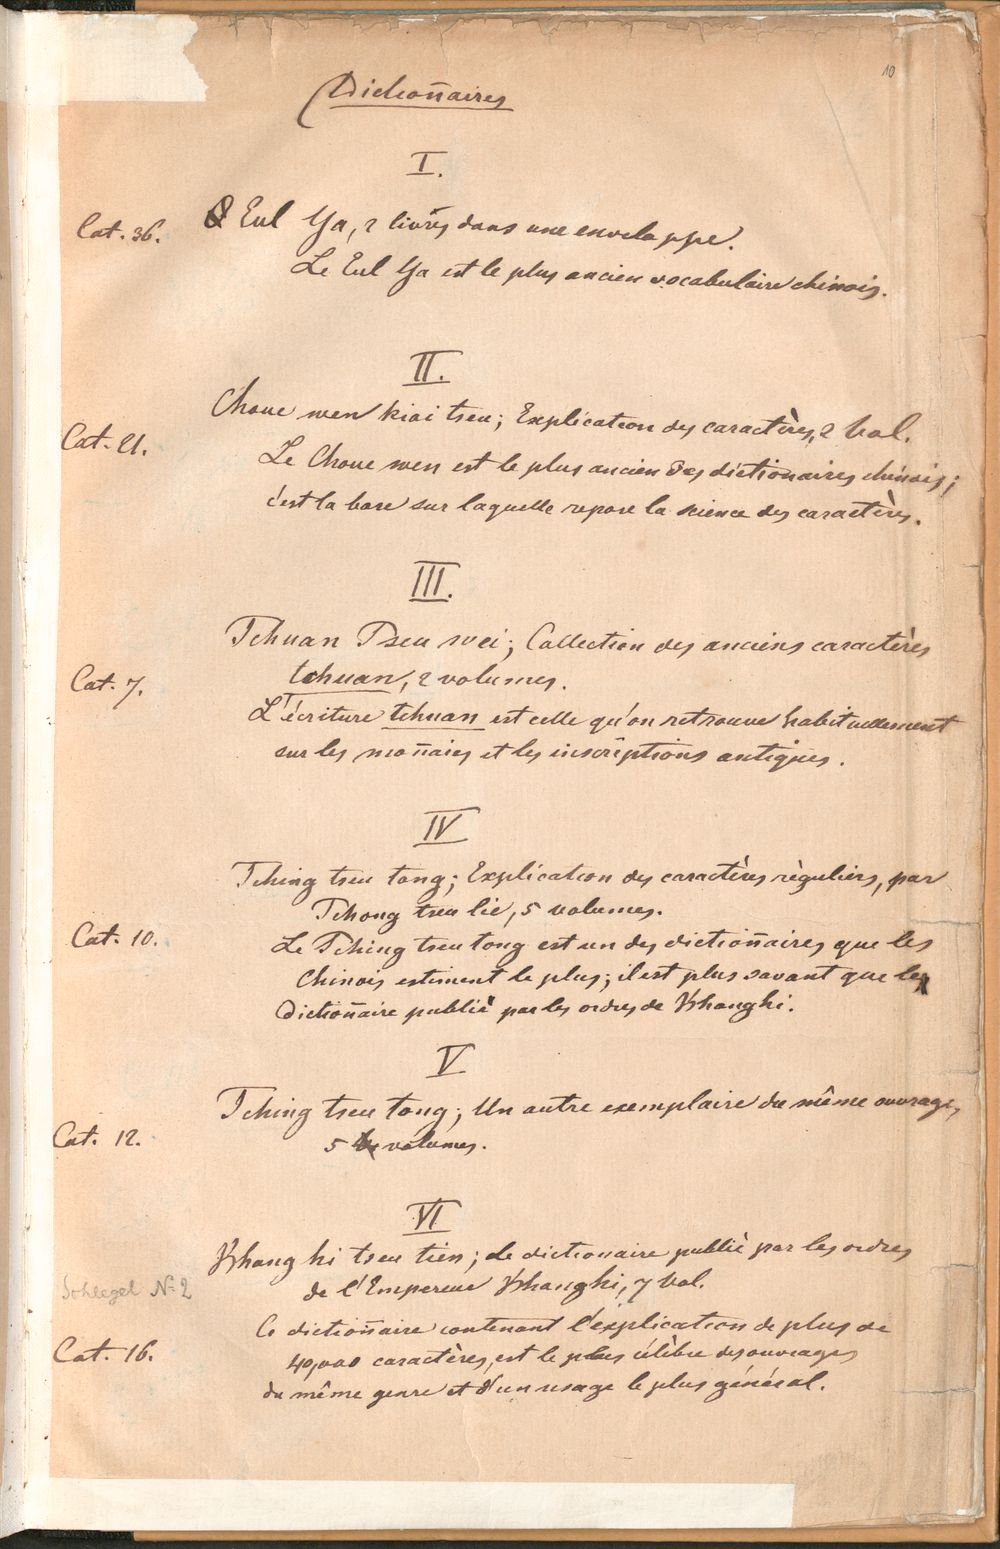 10
Dictioñaires
I.
Cat. 36.
Eul Ya, 2 livres dans une enveloppe.
Le Eul Ya est le plus ancien vocabulaire chinois.
II.
Choue wen kiai tseu; Explication des caractères, 2 Vol.
Cat. 21.
Le Choue wen est le plus ancien des dictionaires chinois;
c'est la base sur laquelle repose la science des caractères.
III.
Tchuan Tseu wei; Collection des anciens caractères
Cat. 7.
tchuan, 2 volumes.
L'écriture tchuan est celle qu'on retrouve habituellement
sur les moñaies et les inscriptions antiques.
IV
Tching tseu tong; Explication des caractères règuliers, par
Tchong tseu lie, 5 volumes.
Cat. 10.
Le Tching tseu tong est un des dictioñaires que les
Chinois estiment le plus; il est plus savant que le
Dictioñaire publiè par les ordres de Khanghi.
V
Tching tseu tong; Un autre exemplaire du même ouvrage,
Cat. 12.
5 volumes.
VI
Khang hi tseu tien; Le dictionaire publiè par les ordres
de l'Empereur Khanghi, 7 Vol.
Schlegel No 2
Ce dictioñaire contenant l'explication de plus de
Cat. 16.
40,000 caractères, est le plus célèbre des ouvrages
du même genre et d'un usage le plus général.